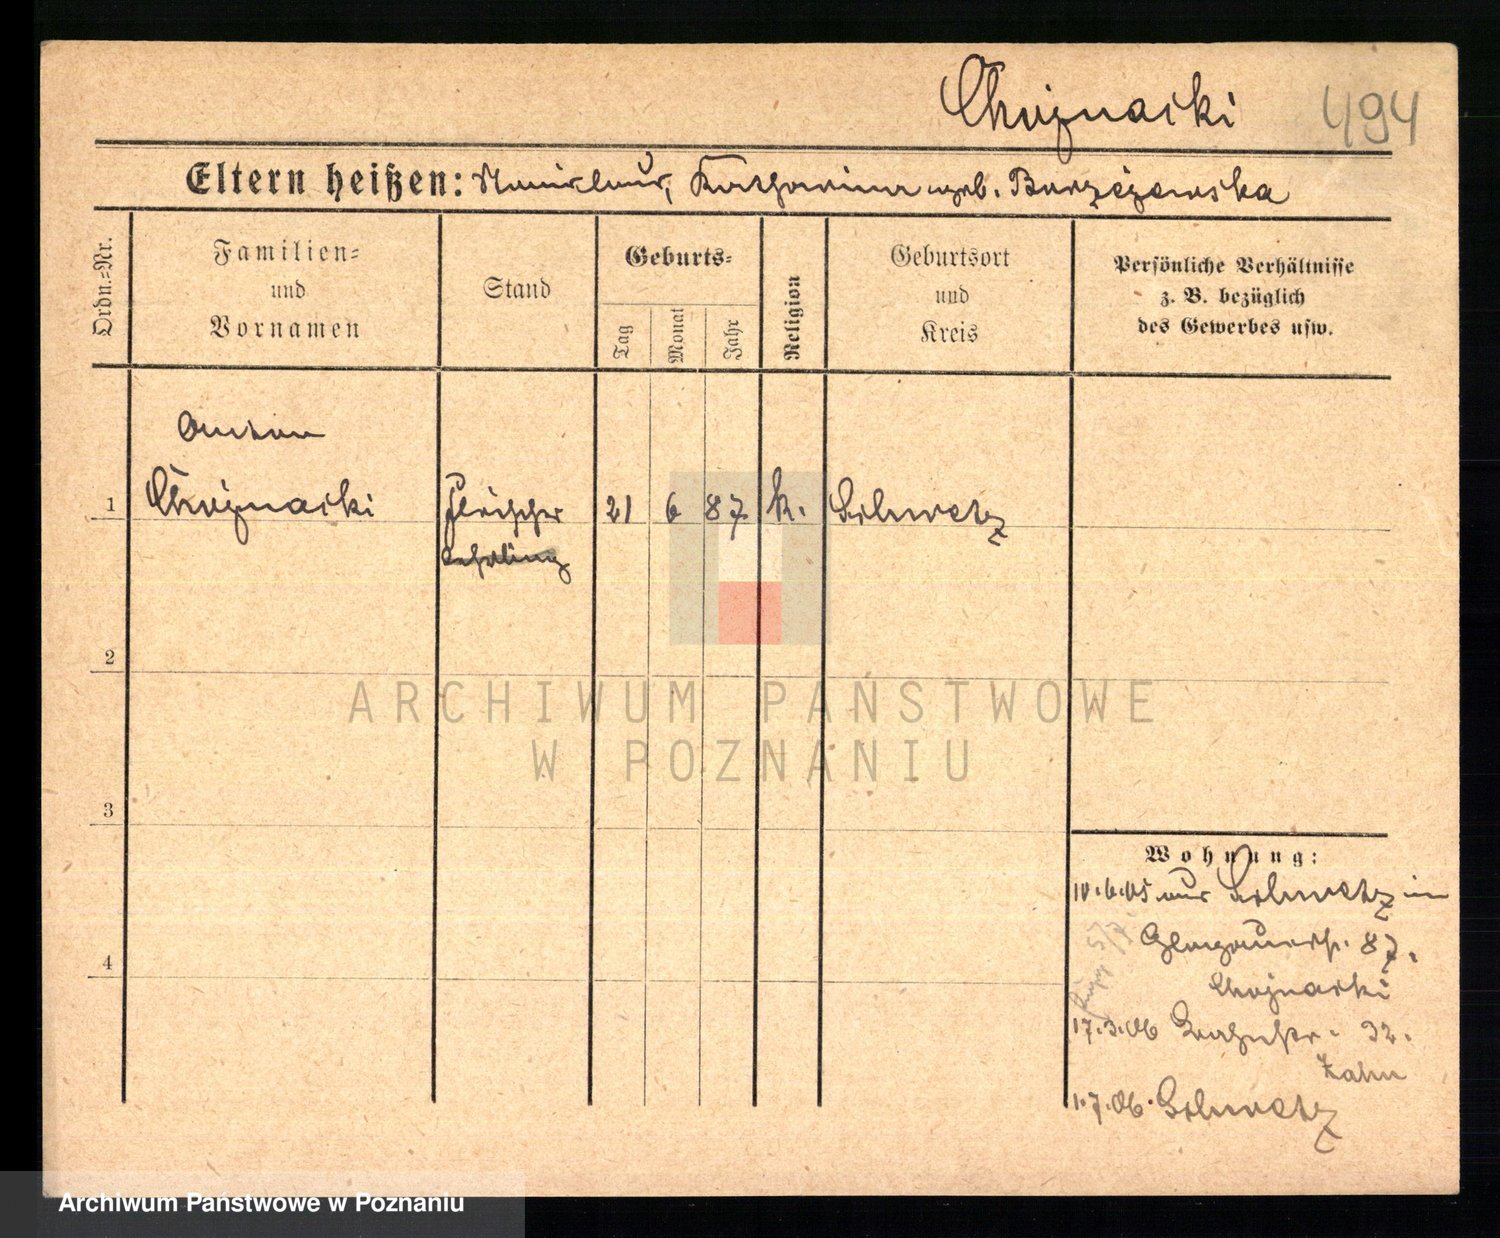 Chojnacki 494
Eltern heißen: Stanislaus, Katharina geb. Borzezewska
Ordn.=Nr.
Familien=
und
Vornamen
Stand
Geburts=
Tag
Monat
Jahr
Religion
Geburtsort
und
Kreis
Persönliche Verhältnisse
z. B. bezüglich
des Gewerbes usw.
Anton
1 Chojnacki Fleischer 21 6 87 k. Schwetz
Lehrling
2
ARCHIWUM PAŃSTWOWE
W POZNANIU
3
4
Wohnung:
10.6.05 aus Schwetz in
Glogauerstr. 87.
Chojnacki
17.3.06 32.
Zahn
1.7.06. Schwetz
Archiwum Państwowe w Poznaniu